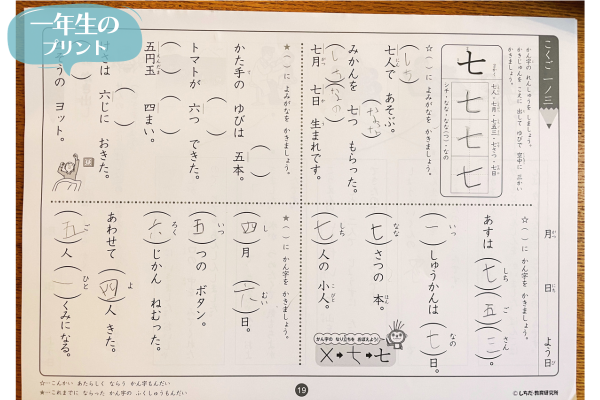 一年生の
プリント
こくご 一ノ三
月 日 よう日
かん字の れんしゅうを しましょう。
かきじゅんを こえに 出して ゆびで 空中に 三かい
かきましょう。
七 七 七 七
七人・七月・七五三・七さつ・七日
シチ・なな・なな(つ)・なの
☆( )に よみがなを かきましょう。
(しち)
七人で あそぶ。
(なな)
みかんを 七つ もらった。
(しちがつ)
七月 七日 生まれです。
★( )に よみがなを かきましょう。
( )
かた手の ゆびは 五本。
( )
トマトが 六つ できた。
( ) ( )
五円玉 四まい。
( )
さは 六じに おきた。
そうの ヨット。
☆( )に かん字を かきましょう。
あすは (七)(五)(三)。
(一)しゅうかんは (七)日。
(七)さつの 本。
(七)人の 小人。
かん字の なり立ちを おぼえよう!
★( )に かん字を かきましょう。
(四)月 (六)日。
(五)つの ボタン。
(六)じかん ねむった。
あわせて (四)人 きた。
(五)人 (一)くみになる。
☆…こんかい あたらしく ならう かん字もんだい
★…これまでに ならった かん字の ふくしゅうもんだい
19
©しちだ・教育研究所